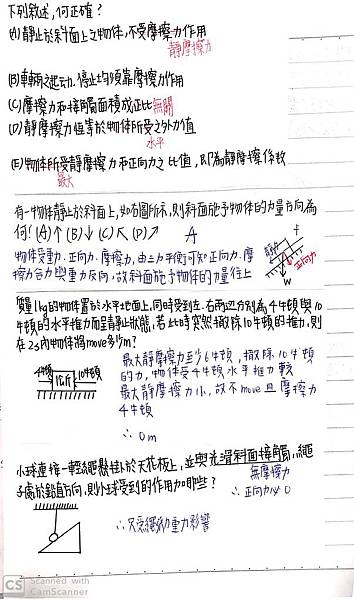 下列敘述,何正確?
(A)靜止於斜面上之物体,不受摩擦力作用
靜摩擦力
(B)車輛之起动.停止均須靠摩擦力作用
(C)摩擦力和接觸面積成正比無關
(D)靜摩擦力值等於物体所受之外力值
水平
(E)物体所受靜摩擦力和正向力之比值,即為靜摩擦係數
最大
有一物体靜止於斜面上,如右圖所示,則斜面施予物体的力量方向為
何?(A)↑(B)↓(C)↖(D)↗ A
物体受重力.正向力.摩擦力,由三力平衡可知正向力.摩
擦力合力與重力反向,故斜面施予物体的力量往上
f
正向力
W
質量1kg的物体置於水平地面上,同時受到左.右兩边分別為4牛頓與10
牛頓的水平推力而呈靜止狀態,若此時突然撤除10牛頓的推力,則
在2s內物体將move多少m?
4牛頓 1公斤 10牛頓
最大靜摩擦力至少6牛頓,撤除10牛頓
的力,物体受4牛頓水平推力較
最大靜摩擦力小,故不move且摩擦力
4牛頓
∴0m
小球連接一輕繩懸掛於天花板上,並與光滑斜面接觸,繩
無摩擦力
子處於鉛直方向,則小球受到的作用力如那些?
∴正向力為0
∴只受繩張力重力影響
CS Scanned with
CamScanner